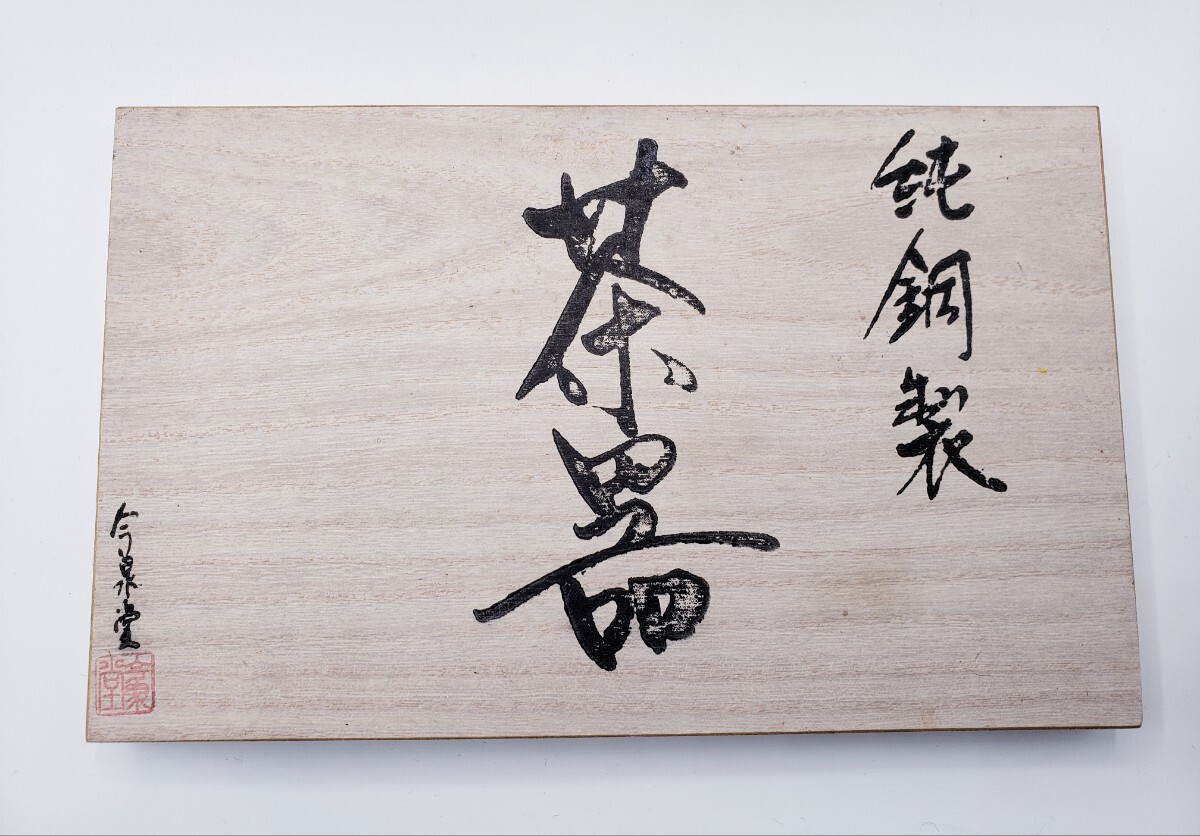 純銅製
茶器
今泉堂